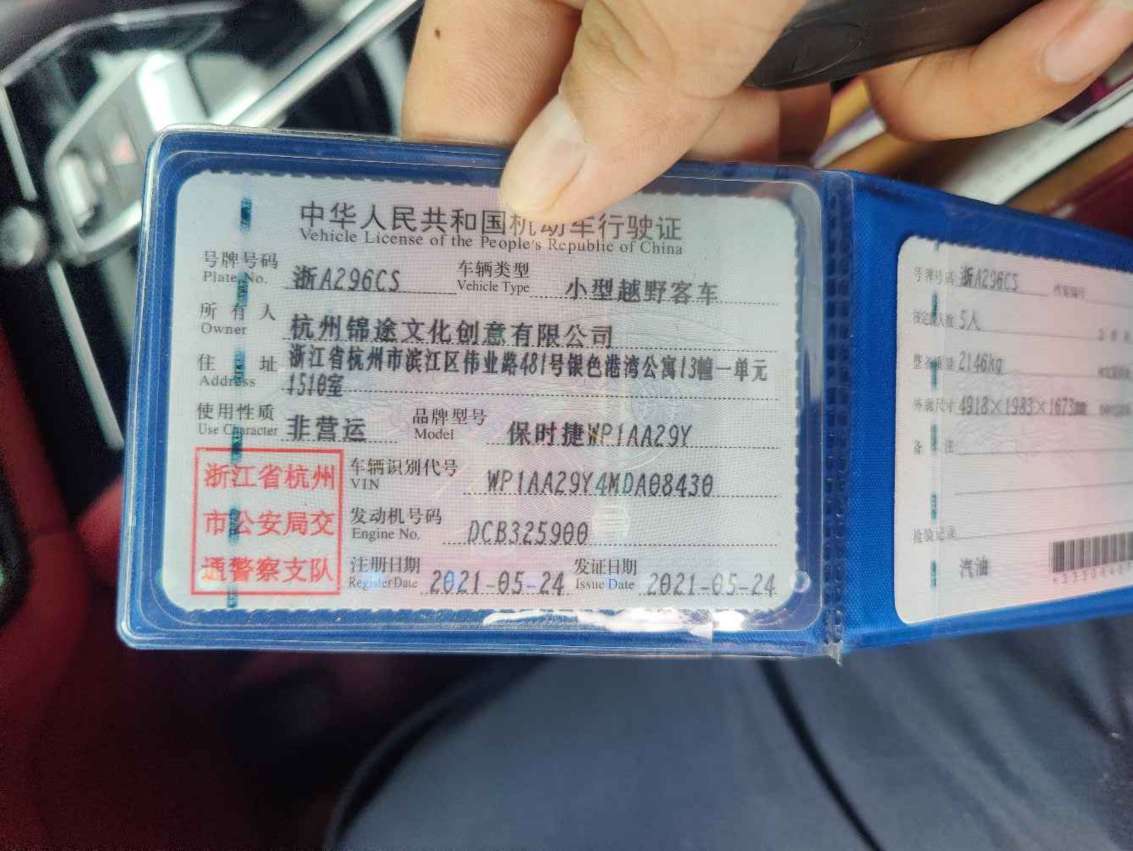 中华人民共和国机动车行驶证
Vehicle License of the People's Republic of China
号牌号码 浙A296CS 车辆类型 小型越野客车
Plate No. Vehicle Type
所有人 杭州锦途文化创意有限公司
Owner
住址 浙江省杭州市滨江区伟业路481号银色港湾公寓13幢一单元
Address 1510室
使用性质 非营运 品牌型号 保时捷WP1AA29Y
Use Character Model
浙江省杭州
市公安局交
通警察支队
车辆识别代号 WP1AA29Y4MDA08430
VIN
发动机号码 DCB325900
Engine No.
注册日期 2021-05-24 发证日期 2021-05-24
Register Date Issue Date
号牌号码 浙A296CS
5人
2146kg
外廓尺寸 4918×1983×1673mm
备注
检验记录
汽油